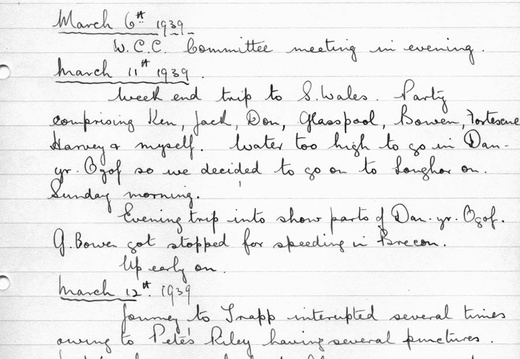 March 6th 1939.
W.C.C. Committee meeting in evening.
March 11th 1939.
Week end trip to S. Wales. Party
comprising Ken, Jack, Don, Glasspool, Bowen, Fortescue
Harvey & myself. Water too high to go in Dan-
yr. Ogof so we decided to go on to Loughor on.
Sunday morning.
Evening trip into show parts of Dan. yr. Ogof.
G. Bowen got stopped for speeding in Brecon.
Up early on.
March 12th. 1939
Journey to Trapp interupted several times
owing to Pete's Riley having several punctures.